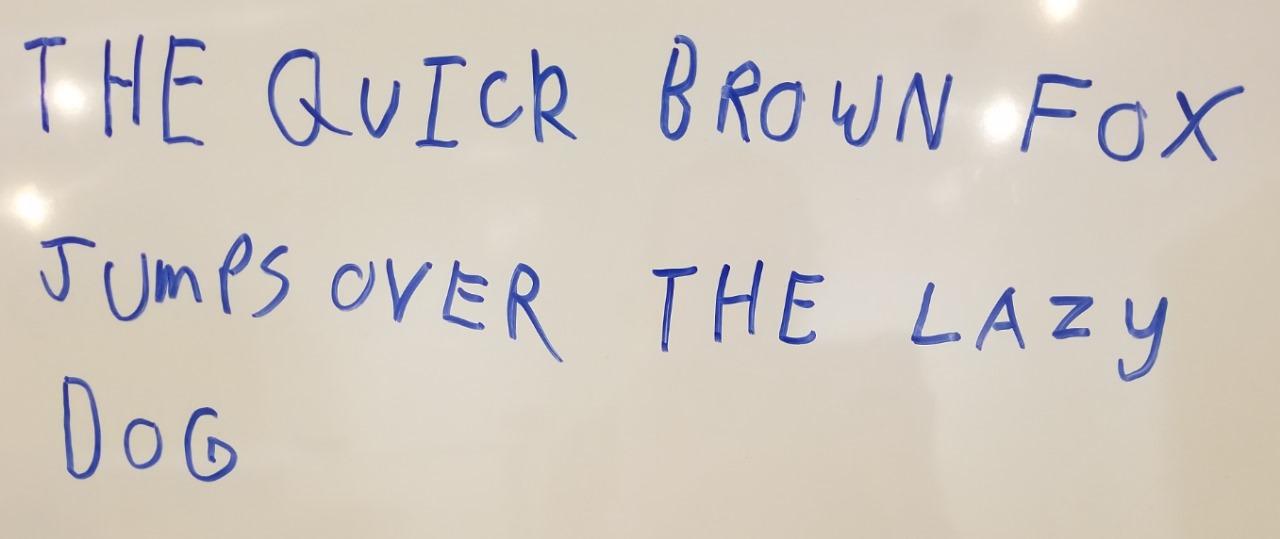 THE QUICK BROWN FOX
JUMPS OVER THE LAZY
DOG